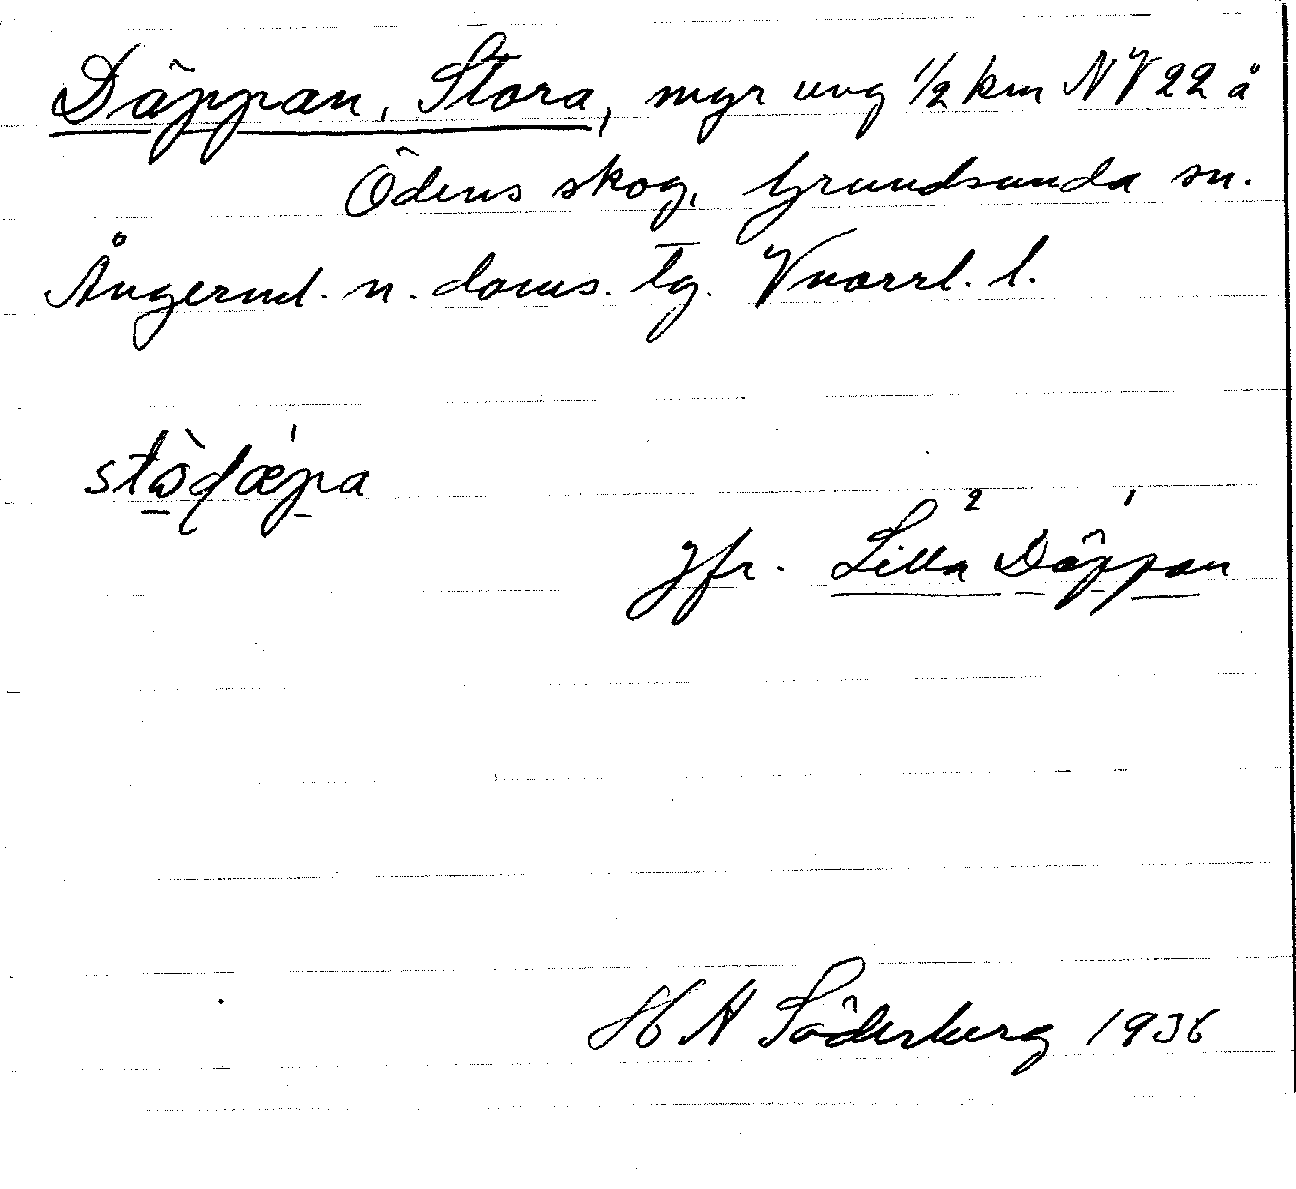 Däppan, Stora, myr ung 1/2 km NV 22 å
Ödens skog, Grundsunda sn.
Ångerml. n. doms. tg. Vnorrl. l.
stòdǽpa
Jfr. Lilla Däppan
2 1
H A Söderberg 1936